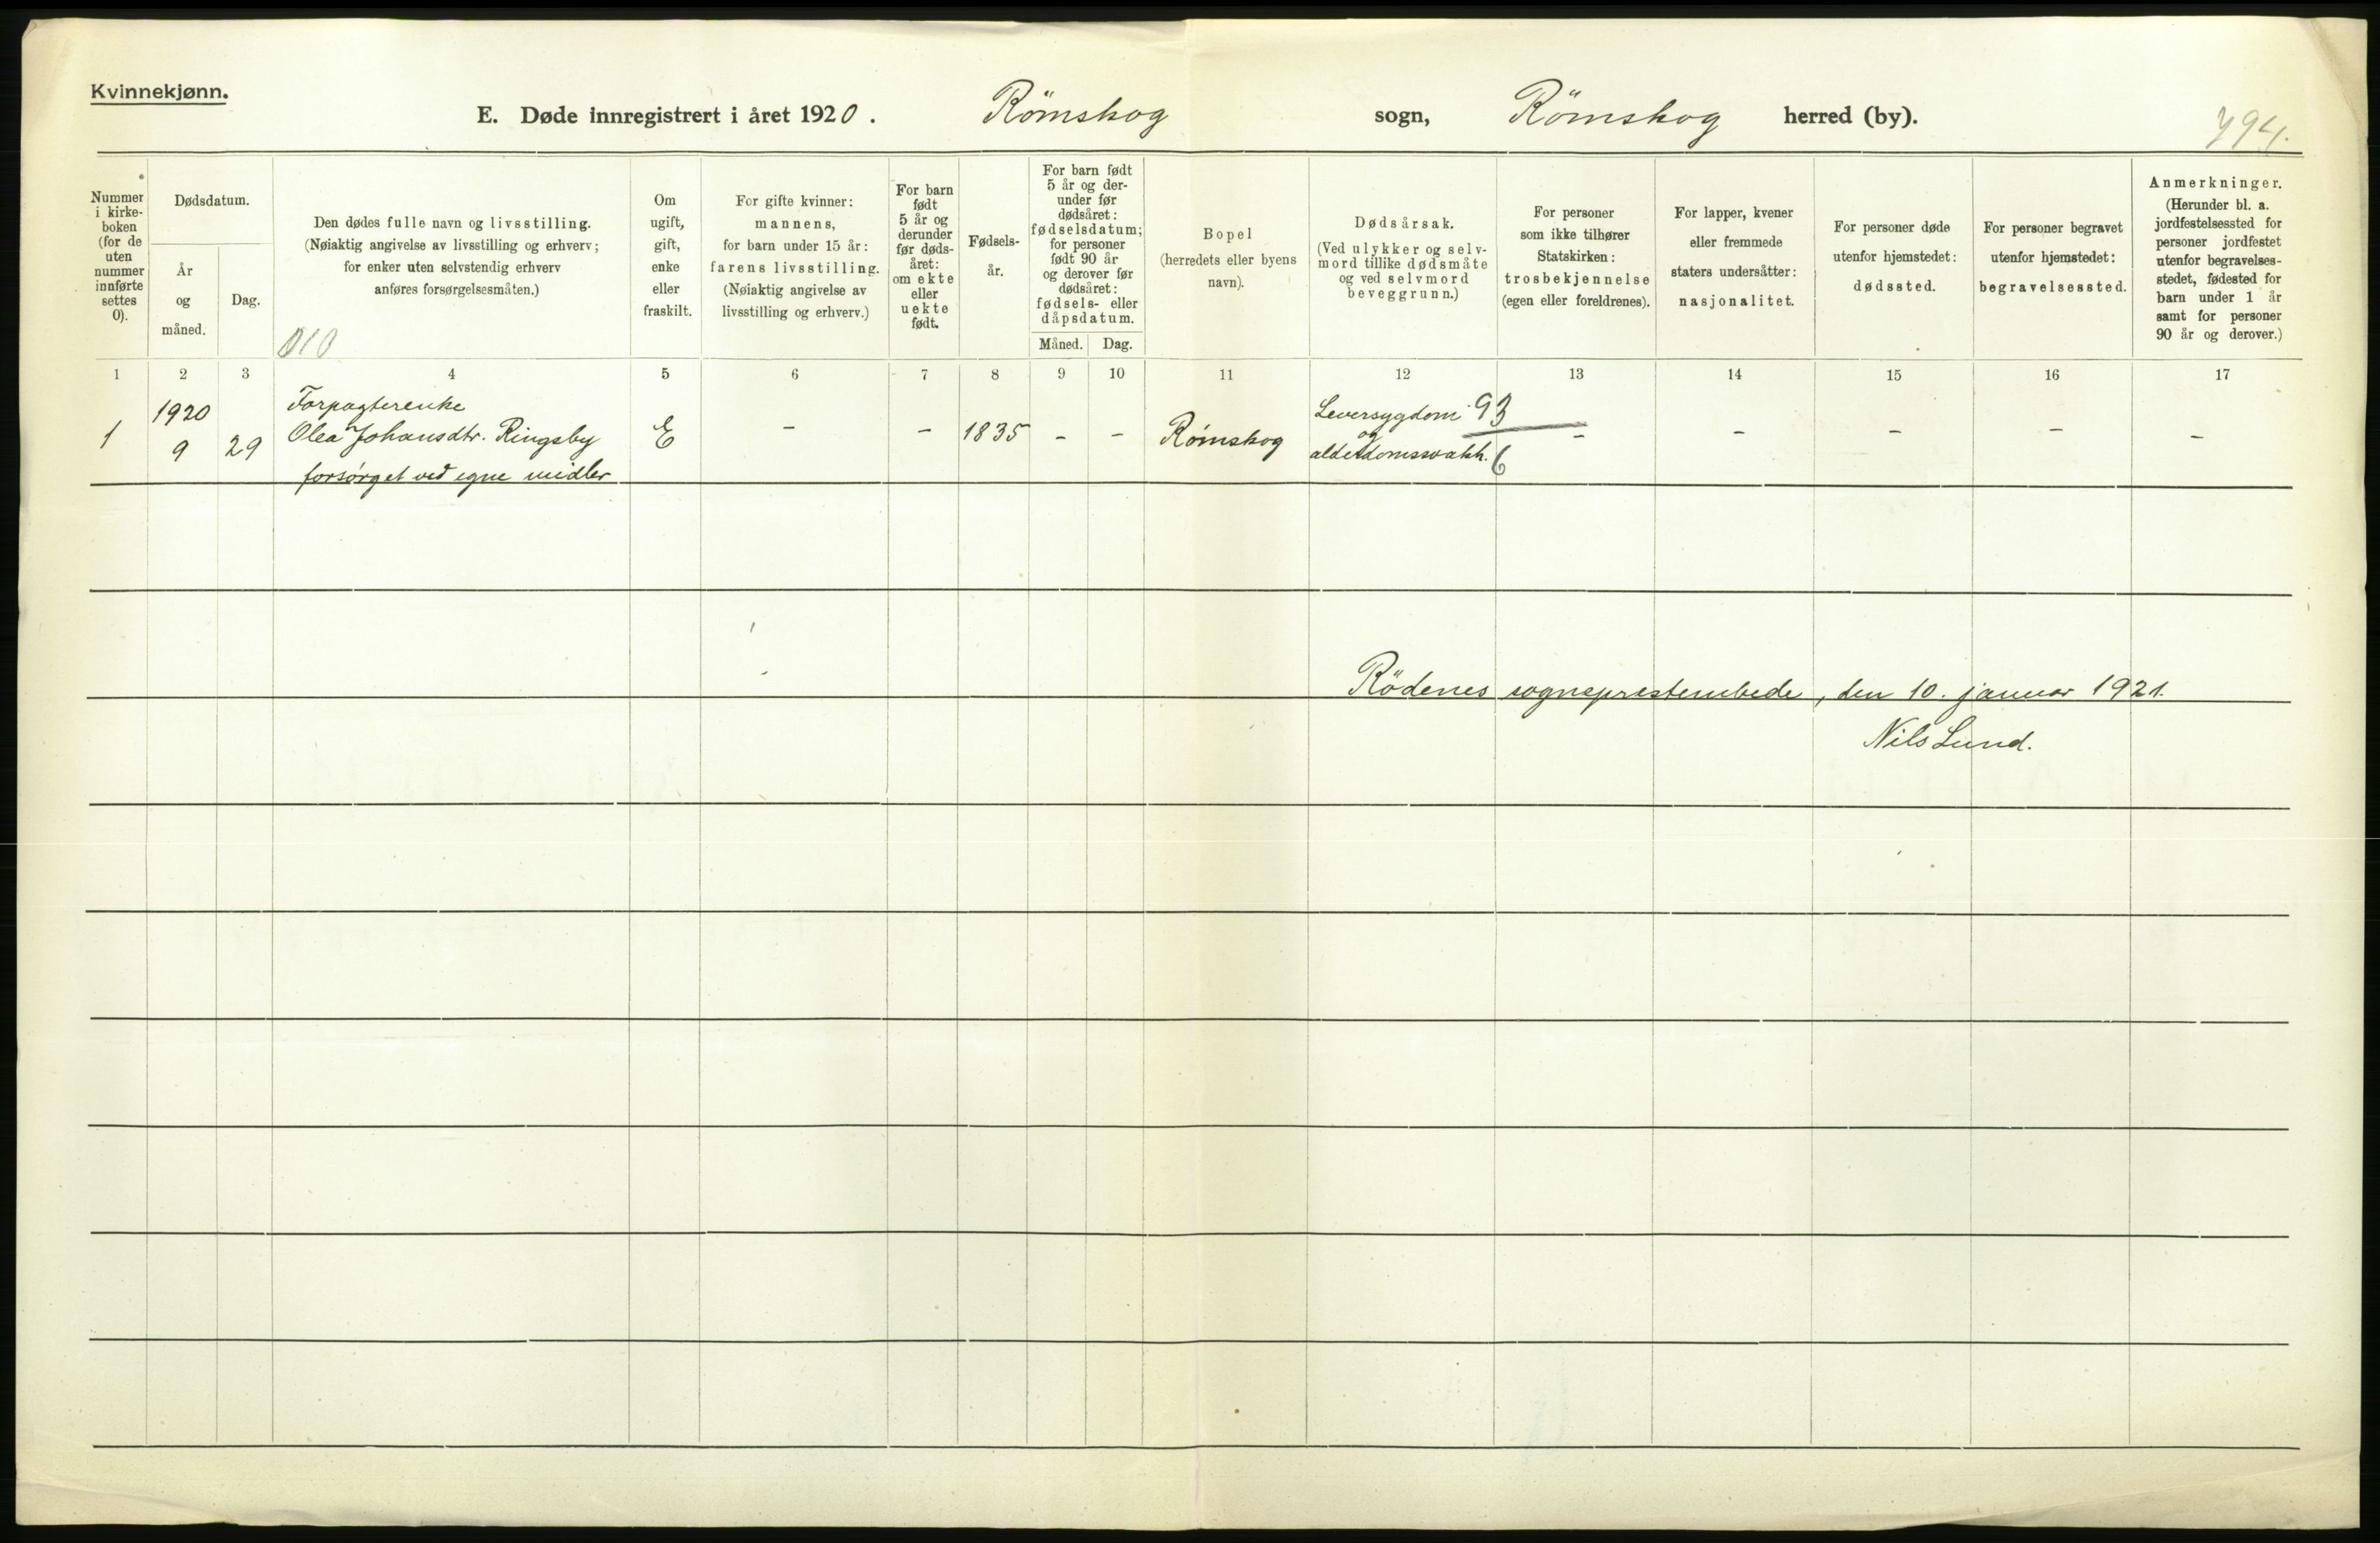 Kvinnekjønn.
E. Døde innregistrert i året 1920. Römskog sogn, Römskog herred (by).
794.
Nummer
i kirke-
boken
(for de
uten
nummer
innførte
settes
0).
Dødsdatum.
År
og
måned.
Dag.
Den dødes fulle navn og livsstilling.
(Nøiaktig angivelse av livsstilling og erhverv;
for enker uten selvstendig erhverv
anføres forsørgelsesmåten.)
010
Om
ugift,
gift,
enke
eller
fraskilt.
For gifte kvinner:
mannens,
for barn under 15 år:
farens livsstilling.
(Nøiaktig angivelse av
livsstilling og erhverv.)
For barn
født
5 år og
derunder
før døds-
året:
om ekte
eller
uekte
født.
Fødsels-
år.
For barn født
5 år og der-
under før
dødsåret:
fødselsdatum;
for personer
født 90 år
og derover før
dødsåret:
fødsels- eller
dåpsdatum.
Måned. Dag.
Bopel
(herredets eller byens
navn).
Dødsårsak.
(Ved ulykker og selv-
mord tillike dødsmåte
og ved selvmord
beveggrunn.)
For personer
som ikke tilhører
Statskirken:
trosbekjennelse
(egen eller foreldrenes).
For lapper, kvener
eller fremmede
staters undersåtter:
nasjonalitet.
For personer døde
utenfor hjemstedet:
dødssted.
For personer begravet
utenfor hjemstedet:
begravelsessted.
Anmerkninger.
(Herunder bl. a.
jordfestelsessted for
personer jordfestet
utenfor begravelses-
stedet, fødested for
barn under 1 år
samt for personer
90 år og derover.)
1 2 3 4 5 6 7 8 9 10 11 12 13 14 15 16 17
1920 Forpagterenke Leversygdom 93
1 9 29 Olea Johansdtr. Ringsby E - - 1835 - - Römskog og - - - - -
forsørget ved egne midler alderdomssvakh. 6
Rödenes sogneprestembede, den 10. januar 1921.
Nils Lund.